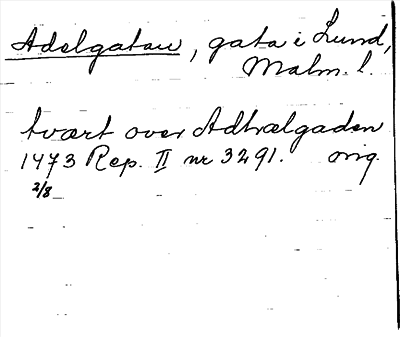 Adelgatan, gata i Lund,
Malm. l.
tvært over Adhælgaden
1473 Rep. II nr 3291. orig.
2/8